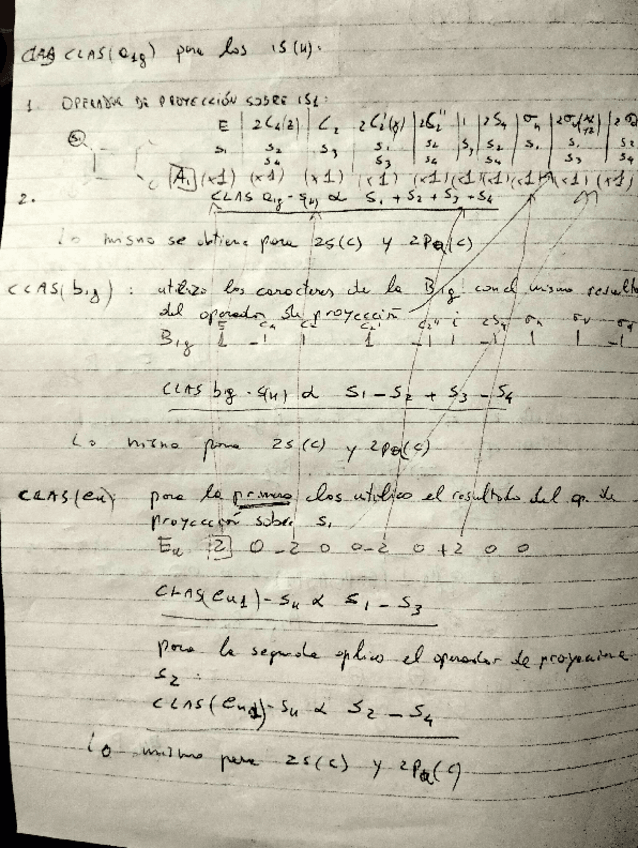 CLAS(a1g) para los 1S(H).
1. OPERADOR DE PROYECCIÓN SOBRE 1S1:
E | 2C4(z) | C2 | 2C2'(y) | 2C2'' | i | 2S4 | σh | 2σv | 2σd
S1 S2 S3 S1 S2 S3 S2 S1 S1 S2
S4 S3 S4 S4 S3 S4
A1 (x1) (x1) (x1) (x1) (x1) (x1) (x1) (x1) (x1) (x1)
2. CLAS a1g - S(H) α S1 + S2 + S3 + S4
Lo mismo se obtiene para 2S(C) y 2P(C)
CLAS(b1g): utilizo los caracteres de la B1g con el mismo resultado
del operador de proyección
E C4 C2 C2' C2'' i 2S4 σh σv σd
B1g 1 -1 1 1 -1 1 -1 1 1 -1
CLAS b1g - S(H) α S1 - S2 + S3 - S4
Lo mismo para 2S(C) y 2P(C)
CLAS(eu): para la primera clas utilizo el resultado del op. de
proyección sobre S1
Eu 2 0 -2 0 0 -2 0 +2 0 0
CLAS(eu1) - SH α S1 - S3
para la segunda aplico el operador de proyección a
S2:
CLAS(eu) - SH α S2 - S4
Lo mismo para 2S(C) y 2P(C)